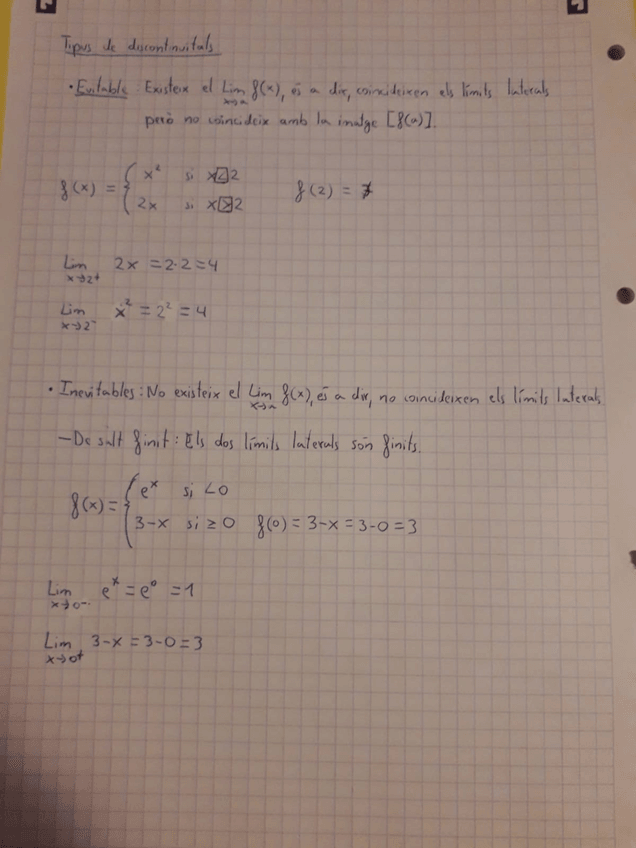 Tipus de discontinuitats
• Evitable: Existeix el Lim f(x), és a dir, coincideixen els límits laterals
x→a
però no coincideix amb la imatge [f(a)].
f(x) = { x² si x<2
2x si x>2 f(2) = ∄
Lim 2x = 2·2 = 4
x→2+
Lim x² = 2² = 4
x→2-
• Inevitables: No existeix el Lim f(x), és a dir, no coincideixen els límits laterals
x→a
-De salt finit: Els dos límits laterals són finits.
f(x) = { e^x si <0
3-x si ≥0 f(0) = 3-x = 3-0 = 3
Lim e^x = e^0 = 1
x→0-
Lim 3-x = 3-0 = 3
x→0+